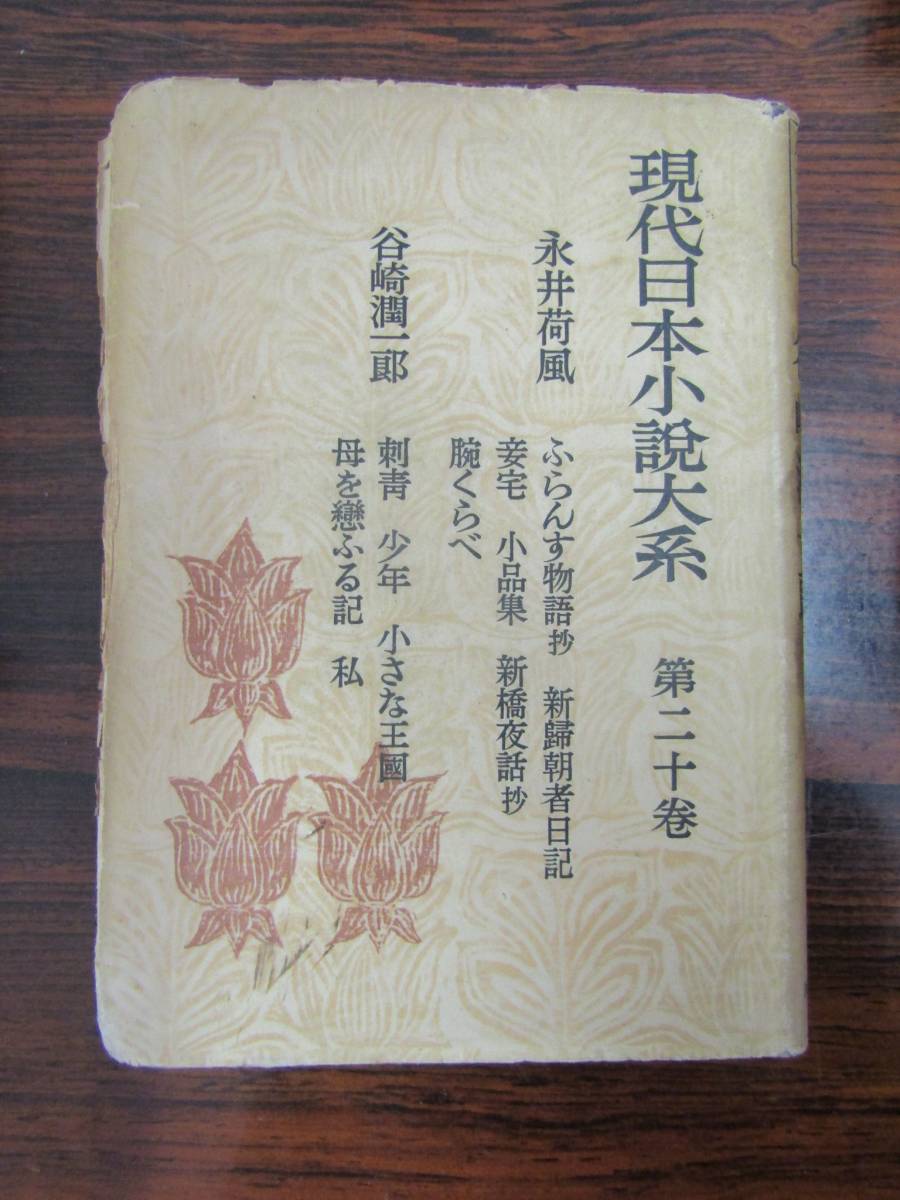 現代日本小說大系　第二十卷
永井荷風
ふらんす物語抄　新歸朝者日記
妾宅　小品集　新橋夜話抄
腕くらべ
谷崎潤一郞
刺靑　少年　小さな王國
母を戀ふる記　私